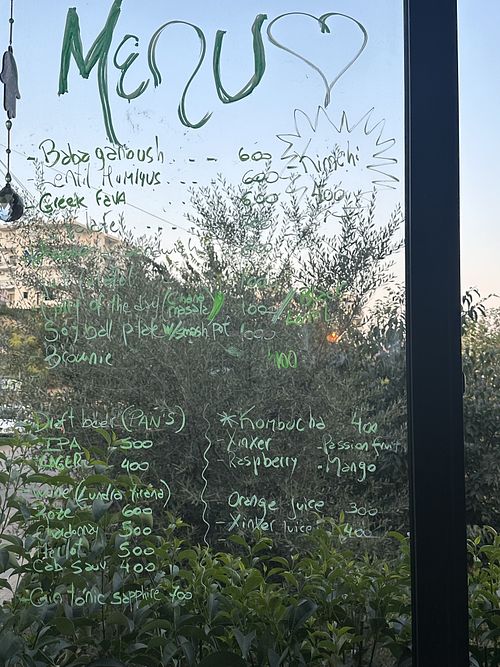 MENU
- Baba ganoush . . - - 600
Lentil Humus . . . 600
- Greek fava 600
- Kimchi
400
Curry of the day (Chana masala) 1000
Soy ball plate w/ smash pot 1000
Brownie 400
Draft beer (PAN'S)
- IPA - 500
400
Wine (Zundra Xirana)
Roze - 600
Chardonnay 500
Merlot 500
Cab Sauv 400
- Gin tonic sapphire 400
*Kombucha 400
- Xinxer - Passion fruit
- Raspberry - Mango
- Orange Juice 300
- Xinxer Juice 400